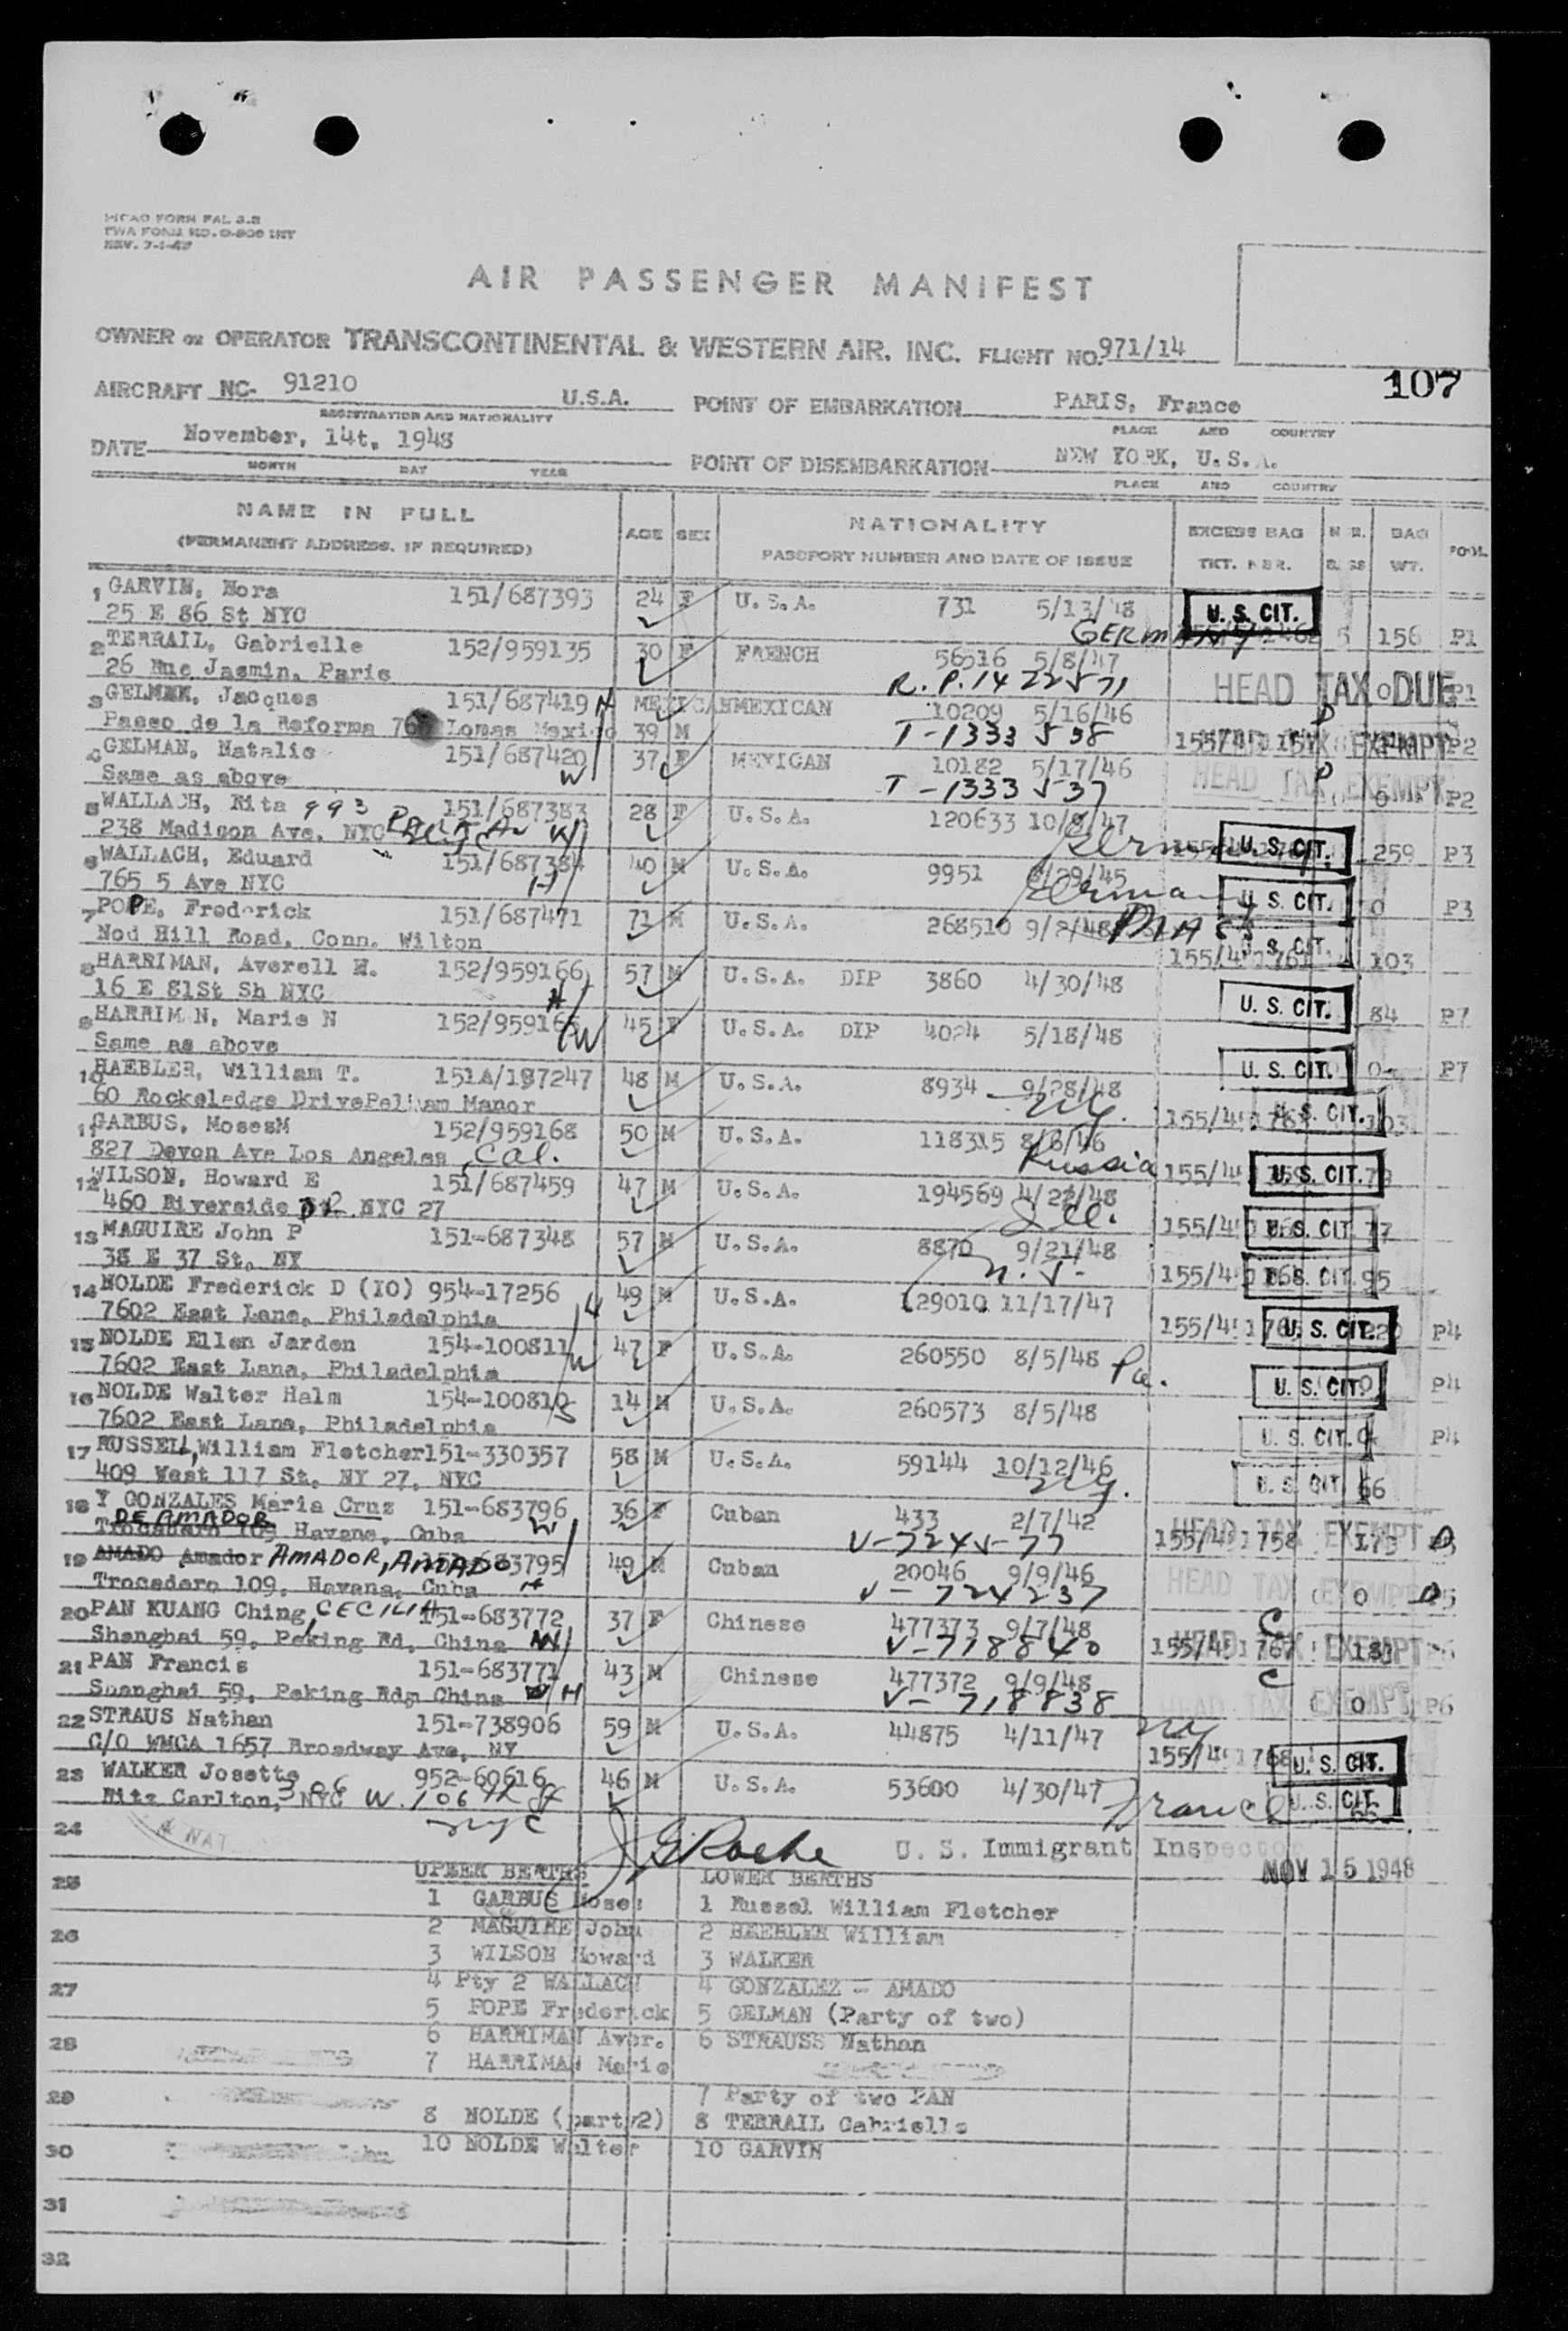 ICAO FORM FAL 3.2
TWA FORM NO. O-806 INT
REV. 7-1-47
AIR PASSENGER MANIFEST
OWNER OR OPERATOR TRANSCONTINENTAL & WESTERN AIR, INC. FLIGHT NO. 971/14
107
AIRCRAFT NC- 91210 U.S.A. POINT OF EMBARKATION PARIS, France
REGISTRATION AND NATIONALITY PLACE AND COUNTRY
DATE November, 14t, 1948 POINT OF DISEMBARKATION NEW YORK, U.S.A.
MONTH DAY YEAR PLACE AND COUNTRY
NAME IN FULL AGE SEX NATIONALITY EXCESS BAG BAG POOL
(PERMANENT ADDRESS, IF REQUIRED) PASSPORT NUMBER AND DATE OF ISSUE TKT. NBR. WT.
1 GARVIN, Nora 151/687393 24 F U.S.A. 731 5/13/48 U. S. CIT.
25 E 86 St NYC GERMANY 5 156 P1
2 TERRAIL, Gabrielle 152/959135 30 F FRENCH 56516 5/8/47
26 Rue Jasmin, Paris R.P. 1422571 HEAD TAX DUE 0 P1
3 GELMAN, Jacques 151/687419 H MEXICAN MEXICAN 10209 5/16/46
Paseo de la Reforma Lomas Mexico 39 M T-1333558 HEAD TAX EXEMPT P2
4 GELMAN, Natalie 151/687420 37 F MEXICAN 10182 5/17/46
Same as above W T-1333537 HEAD TAX EXEMPT 0 P2
5 WALLACH, Rita 993 Park Av 151/687383 28 F U.S.A. 120633 10/9/47
238 Madison Ave, NYC NYC W Germany U. S. CIT. 259 P3
6 WALLACH, Eduard 151/687384 40 M U.S.A. 9951 8/29/45
765 5 Ave NYC H Germany U. S. CIT. 0 P3
7 POPE, Frederick 151/687471 71 M U.S.A. 268510 9/2/48 Mass
Nod Hill Road, Conn. Wilton U. S. CIT. 103
8 HARRIMAN, Averell E. 152/959166 57 M U.S.A. DIP 3860 4/30/48
16 E 81St Sh NYC H U. S. CIT. 84 P7
9 HARRIMAN, Marie N 152/959165 45 F U.S.A. DIP 4024 5/18/48
Same as above W U. S. CIT. 0 P7
10 HAEBLER, William T. 151A/187247 48 M U.S.A. 8934 9/28/48
60 Rockeledge Drive Pelham Manor NY. U. S. CIT. 103
11 GARBUS, MosesM 152/959168 50 M U.S.A. 118315 8/6/46
827 Devon Ave Los Angeles, Cal. Russia U. S. CIT. 79
12 WILSON, Howard E 151/687459 47 M U.S.A. 194569 4/22/48
460 Riverside Dr NYC 27 Ill. U. S. CIT. 77
13 MAGUIRE John P 151-687348 57 M U.S.A. 8870 9/21/48
38 E 37 St, NY N.J. U. S. CIT. 95
14 NOLDE Frederick D (IO) 954-17256 49 M U.S.A. 29010 11/17/47
7602 East Lane, Philadelphia H U. S. CIT. 220 P4
15 NOLDE Ellen Jarden 154-100811 47 F U.S.A. 260550 8/5/48 Pa.
7602 East Lane, Philadelphia W U. S. CIT. 0 P4
16 NOLDE Walter Halm 154-100810 14 M U.S.A. 260573 8/5/48
7602 East Lane, Philadelphia S U. S. CIT. P4
17 RUSSELL, William Fletcher 151-330357 58 M U.S.A. 59144 10/12/46
409 West 117 St, NY 27, NYC NY. U. S. CIT. 66
18 Y GONZALES Maria Cruz 151-683796 36 F Cuban 433 2/7/42
DE AMADOR
Trocadaro 109 Havana, Cuba W V-724577 155/451758 HEAD TAX EXEMPT 175
19 AMADO Amador AMADOR, AMADO 683795 49 M Cuban 20046 9/9/46
Trocadero 109, Havana, Cuba H V-724237 HEAD TAX EXEMPT 0
20 PAN KUANG Ching, CECILIA 151-683772 37 F Chinese 477373 9/7/48 C
Shanghai 59, Peking Rd, China W V-718840 HEAD TAX EXEMPT
21 PAN Francis 151-683771 43 M Chinese 477372 9/9/48 C
Shanghai 59, Peking Rdm China H V-718838 HEAD TAX EXEMPT 0 P6
22 STRAUS Nathan 151-738906 59 M U.S.A. 44875 4/11/47 NY
C/O WMCA 1657 Broadway Ave, NY U. S. CIT.
23 WALKER Josette 952-60616 46 M U.S.A. 53600 4/30/47 France
Ritz Carlton, NYC 306 W. 106th St U. S. CIT.
NYC
24 U. S. Immigrant Inspector
NOV 15 1948
25 UPPER BERTHS LOWER BERTHS
1 GARBUS Moses 1 Russel William Fletcher
26 2 MAGUIRE John 2 HEEBLER William
3 WILSON Howard 3 WALKER
27 4 Pty 2 WALLACH 4 GONZALEZ - AMADO
5 POPE Frederick 5 GELMAN (Party of two)
28 6 HARRIMAN Aver. 6 STRAUSS Nathan
7 HARRIMAN Marie
29 7 Party of two PAN
8 NOLDE (party2) 8 TERRAIL Gabrielle
30 10 NOLDE Walter 10 GARVIN
31
32